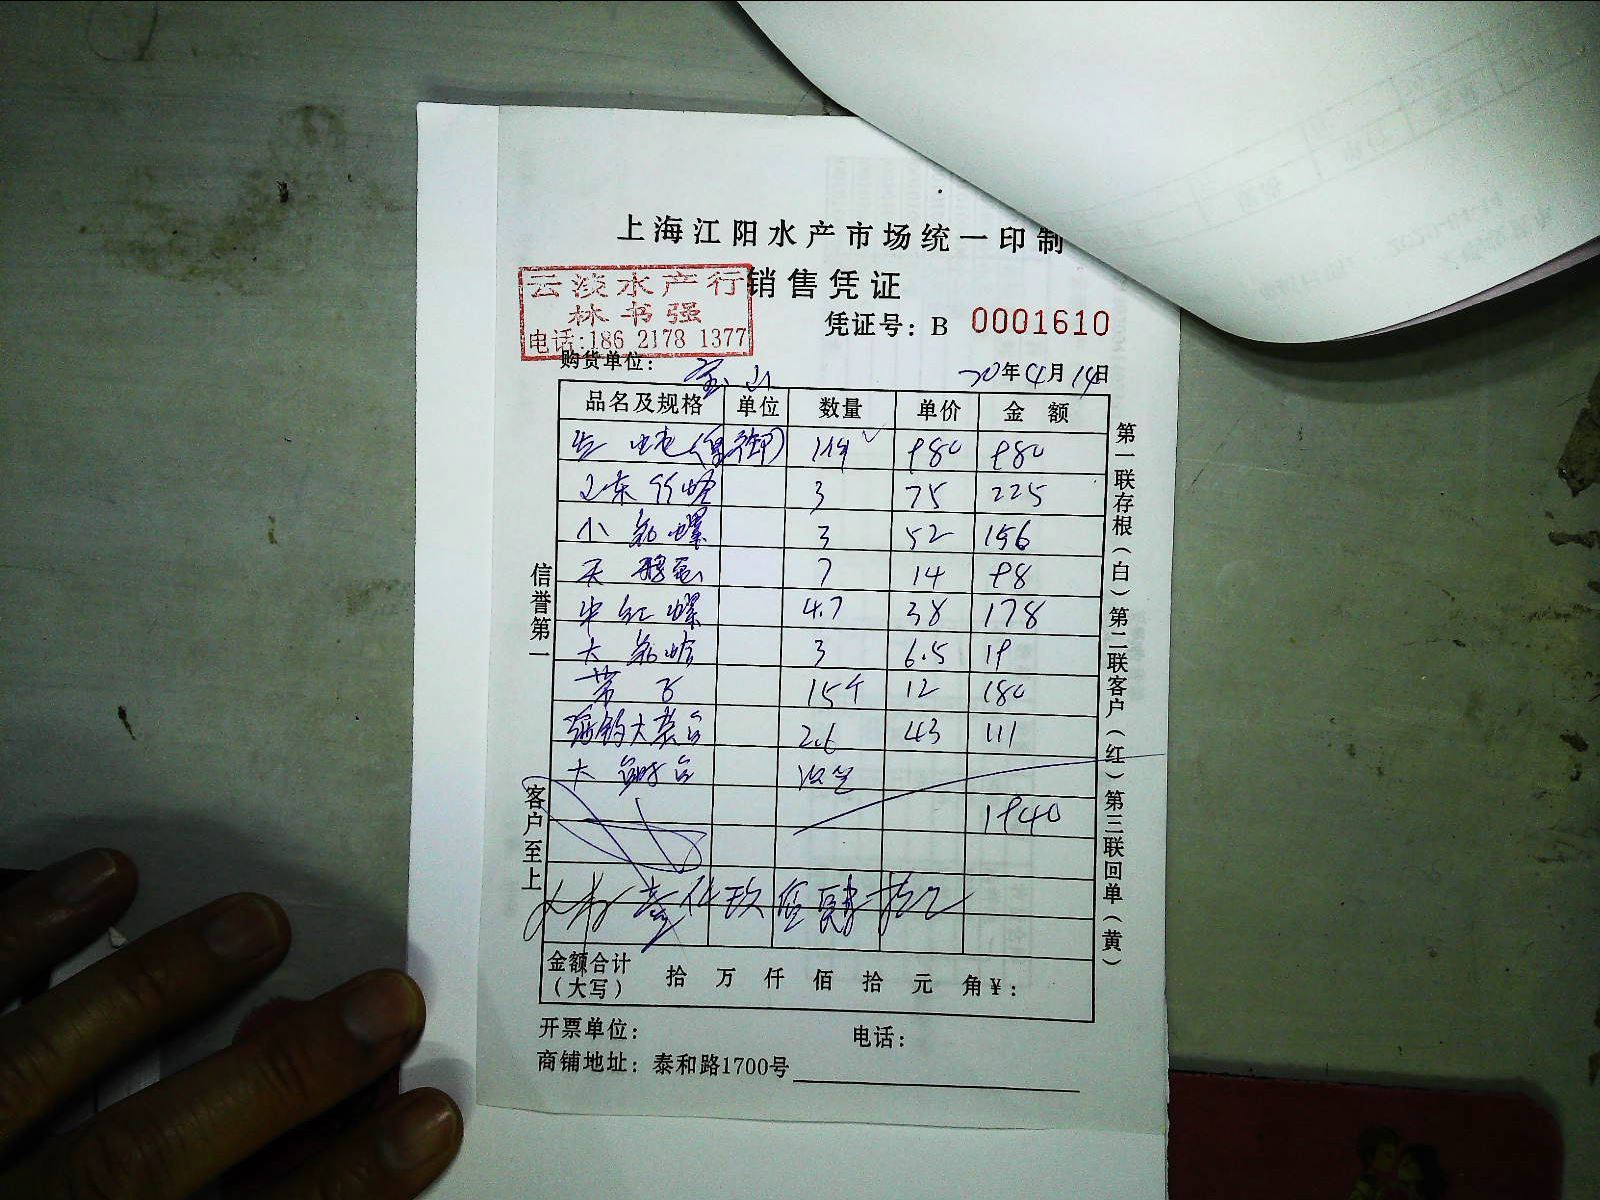 上海江阳水产市场统一印制
销售凭证
云淡水产行
林书强
电话:186 2178 1377
凭证号: B 0001610
购货单位: 宝山
20年4月14日
品名及规格 单位 数量 单价 金额
生蚝 980 980
山东竹蛏 3 75 225
小花螺 3 52 156
天鹅蛋 7 14 98
中红螺 4.7 38 178
大花蛤 3 6.5 19
带子 15个 12 180
2.6 43 111
大
1940
壹仟玖佰肆拾元
金额合计
(大写) 拾 万 仟 佰 拾 元 角 ¥:
开票单位: 电话:
商铺地址: 泰和路1700号
信誉第一
客户至上
第一联存根(白) 第二联客户(红) 第三联回单(黄)